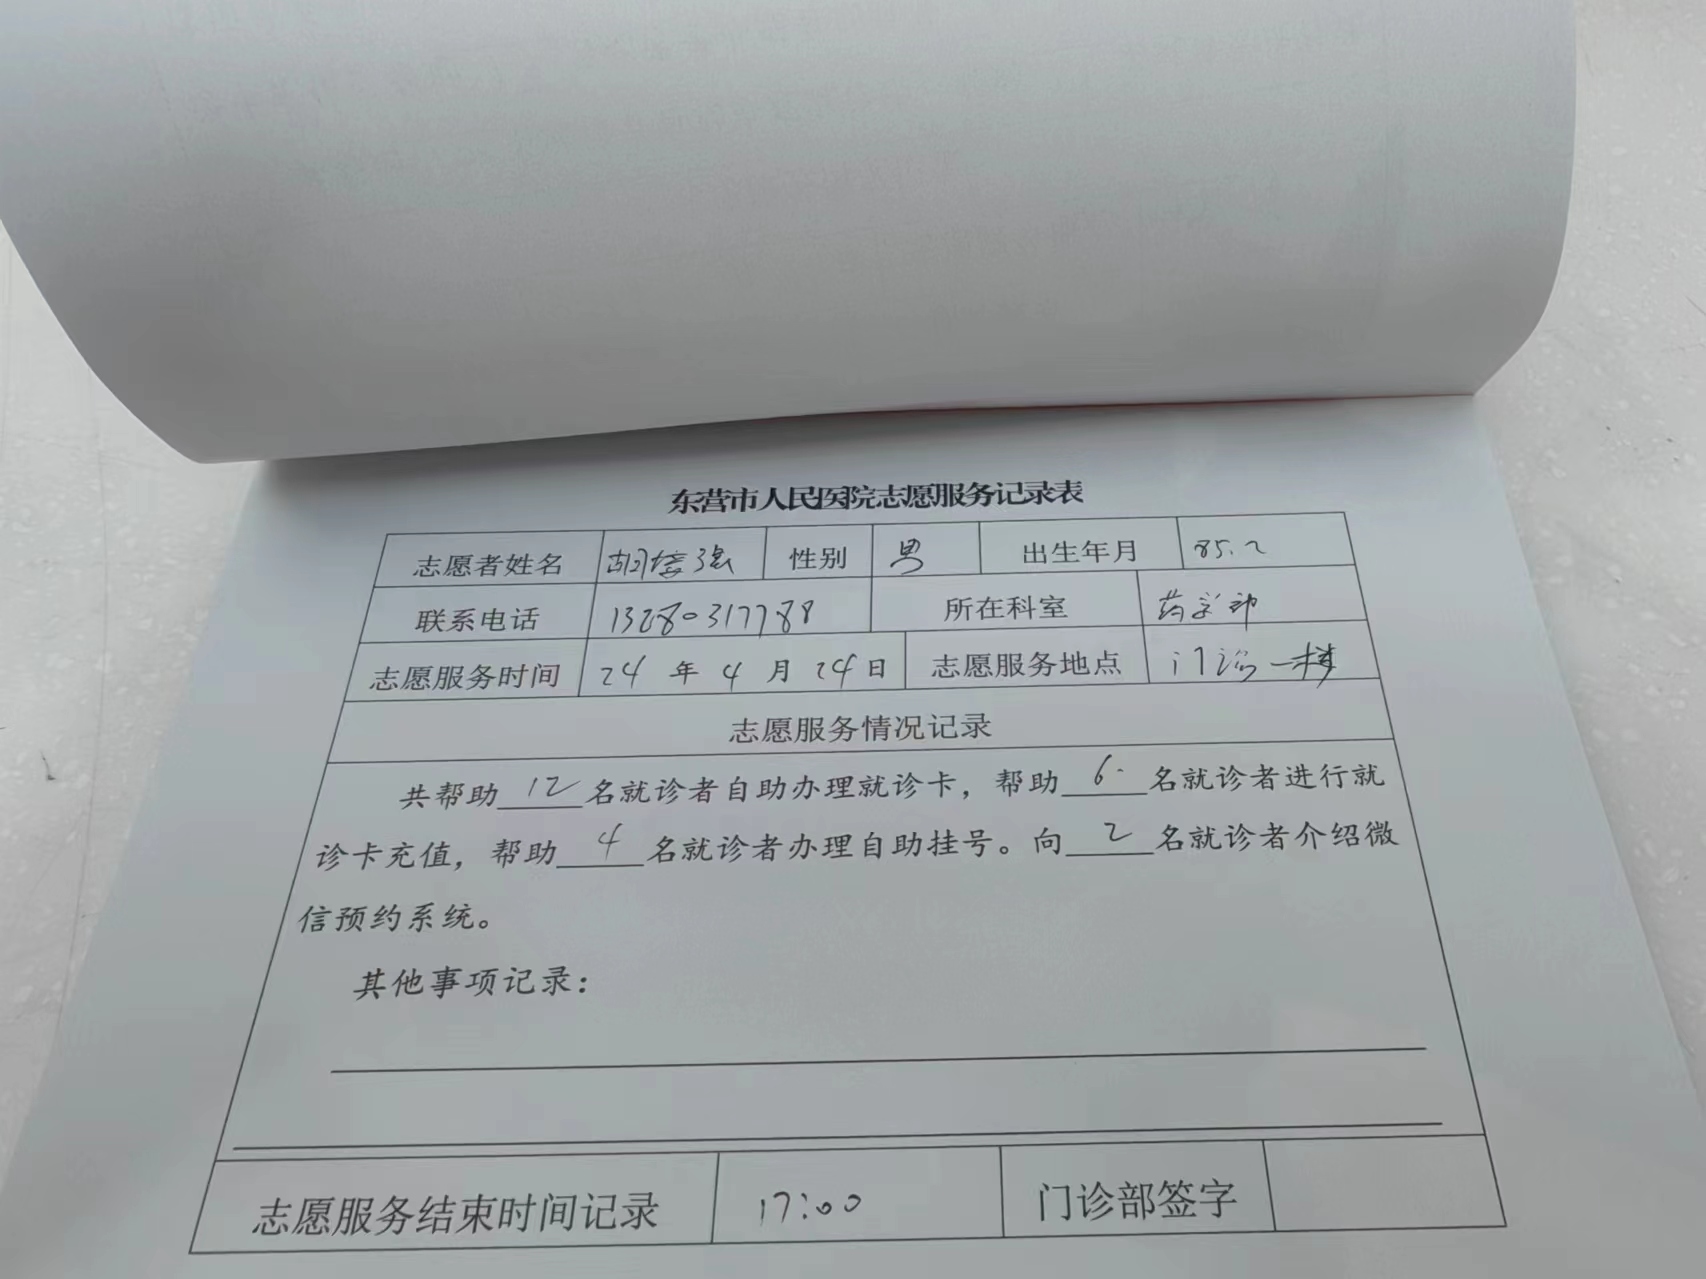 东营市人民医院志愿服务记录表
志愿者姓名 胡 强 性别 男 出生年月 85.2
联系电话 13280317788 所在科室 药学部
志愿服务时间 24 年 4 月 24 日 志愿服务地点 门诊一楼
志愿服务情况记录
共帮助 12 名就诊者自助办理就诊卡，帮助 6 名就诊者进行就
诊卡充值，帮助 4 名就诊者办理自助挂号。向 2 名就诊者介绍微
信预约系统。
其他事项记录：
志愿服务结束时间记录 17:00 门诊部签字